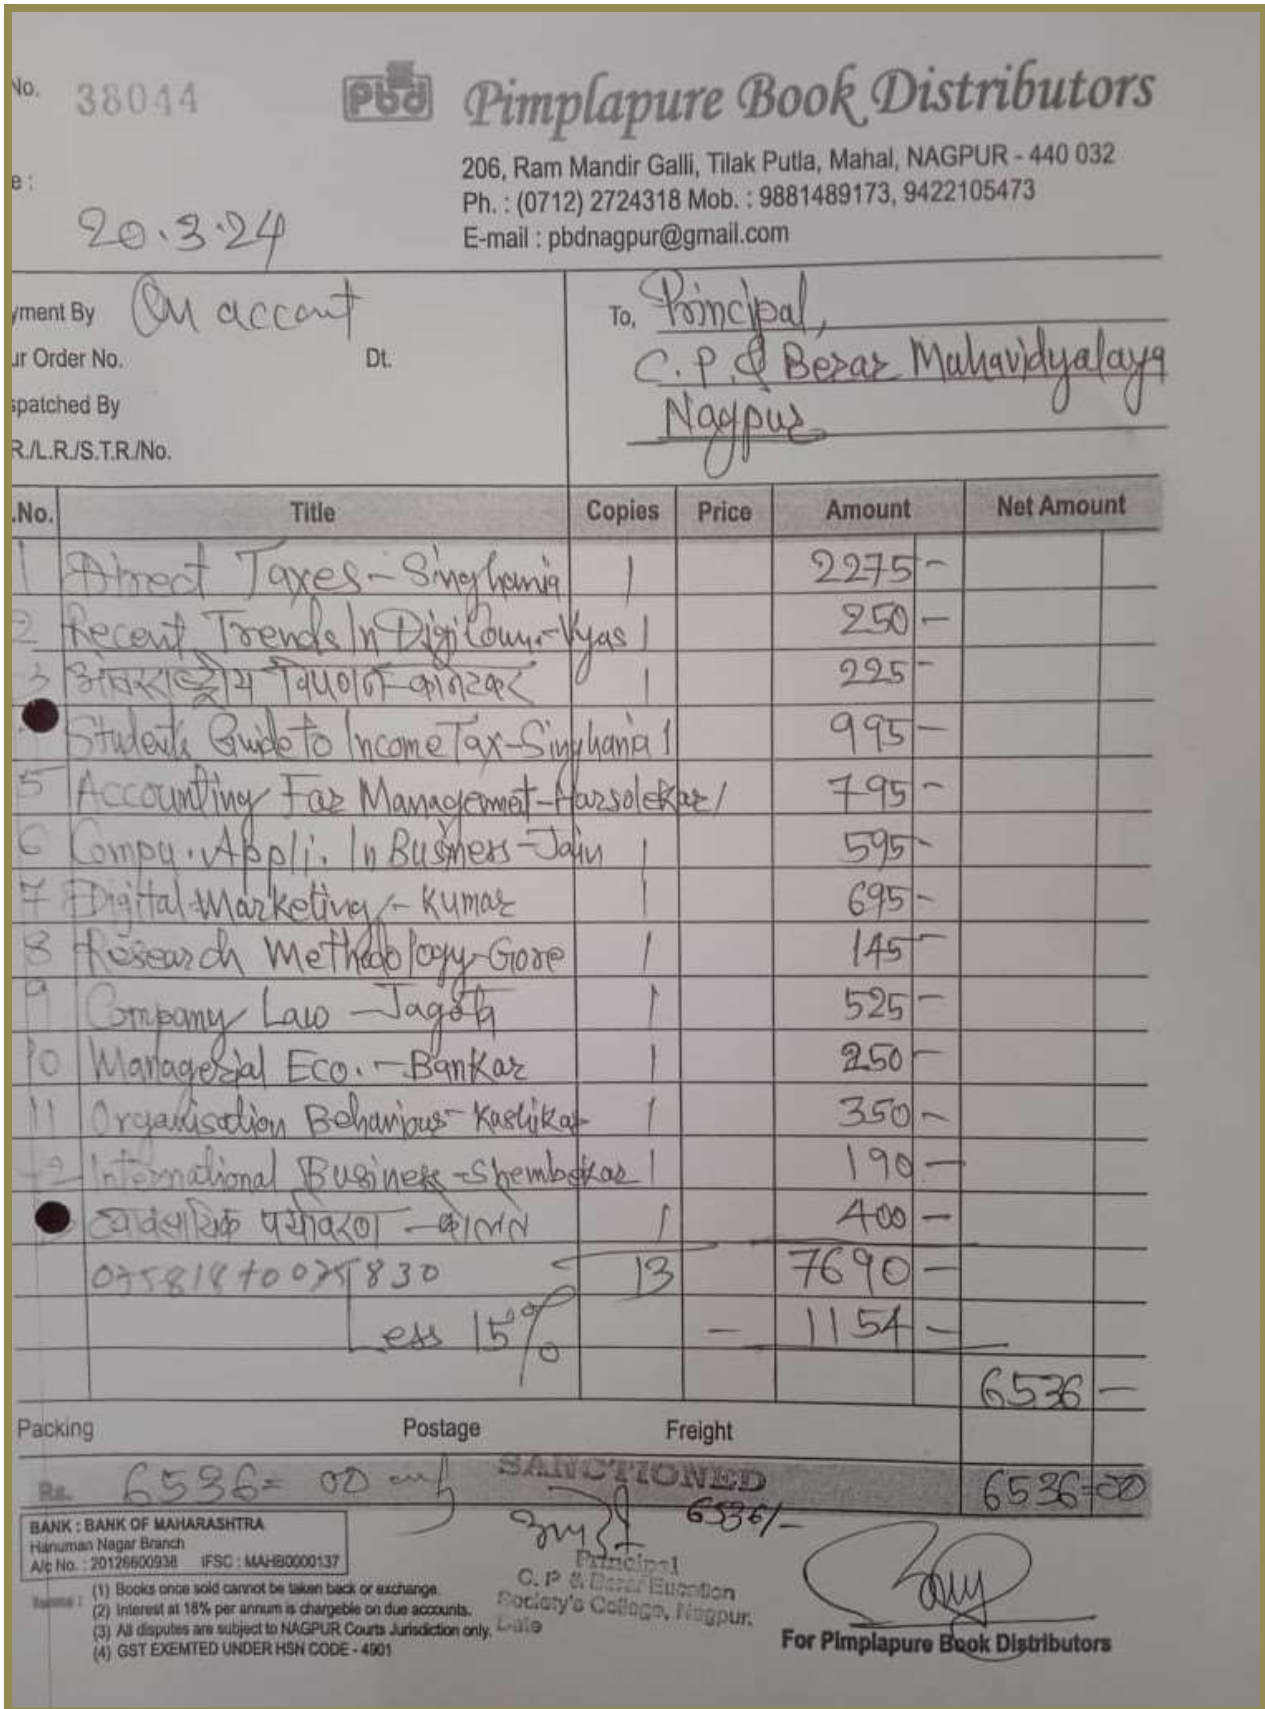 No. 38044
Pbd Pimplapure Book Distributors
206, Ram Mandir Galli, Tilak Putla, Mahal, NAGPUR - 440 032
e :
Ph. : (0712) 2724318 Mob. : 9881489173, 9422105473
20.3.24
E-mail : pbdnagpur@gmail.com
yment By On account
To, Principal,
ur Order No. Dt.
C.P. & Berar Mahavidyalaya
spatched By
Nagpur
R./L.R./S.T.R./No.
.No. Title Copies Price Amount Net Amount
1 Direct Taxes - Singhania 1 2275 -
2 Recent Trends In Digi Comm. - Vyas 1 250 -
3 आंतरराष्ट्रीय विपणन - कानेटकर 1 225 -
Students Guide to Income Tax - Singhania 1 995 -
5 Accounting For Managemet - Harsolekar 1 795 -
6 Compu. Appli. In Business - Jain 1 595 -
7 Digital Marketing - Kumar 1 695 -
8 Research Methodology - Gore 1 145 -
9 Company Law - Jagota 1 525 -
10 Managerial Eco. - Bankar 1 250 -
11 Organisation Behaviour - Kashikar 1 350 -
12 International Business - Shembekar 1 190 -
पर्यावरण 1 400 -
075818 to 075830 13 7690 -
Less 15% - 1154 -
6536 -
Packing Postage Freight
SANCTIONED
Rs. 6536 = 00 only 6536=00
6536/-
BANK : BANK OF MAHARASHTRA
Hanuman Nagar Branch
A/c No. : 20126600938 IFSC : MAHB0000137
Principal
C. P & Berar Eucation
Society's College, Nagpur.
Date
(1) Books once sold cannot be taken back or exchange.
(2) Interest at 18% per annum is chargeble on due accounts.
(3) All disputes are subject to NAGPUR Courts Jurisdiction only.
(4) GST EXEMTED UNDER HSN CODE - 4901
For Pimplapure Book Distributors